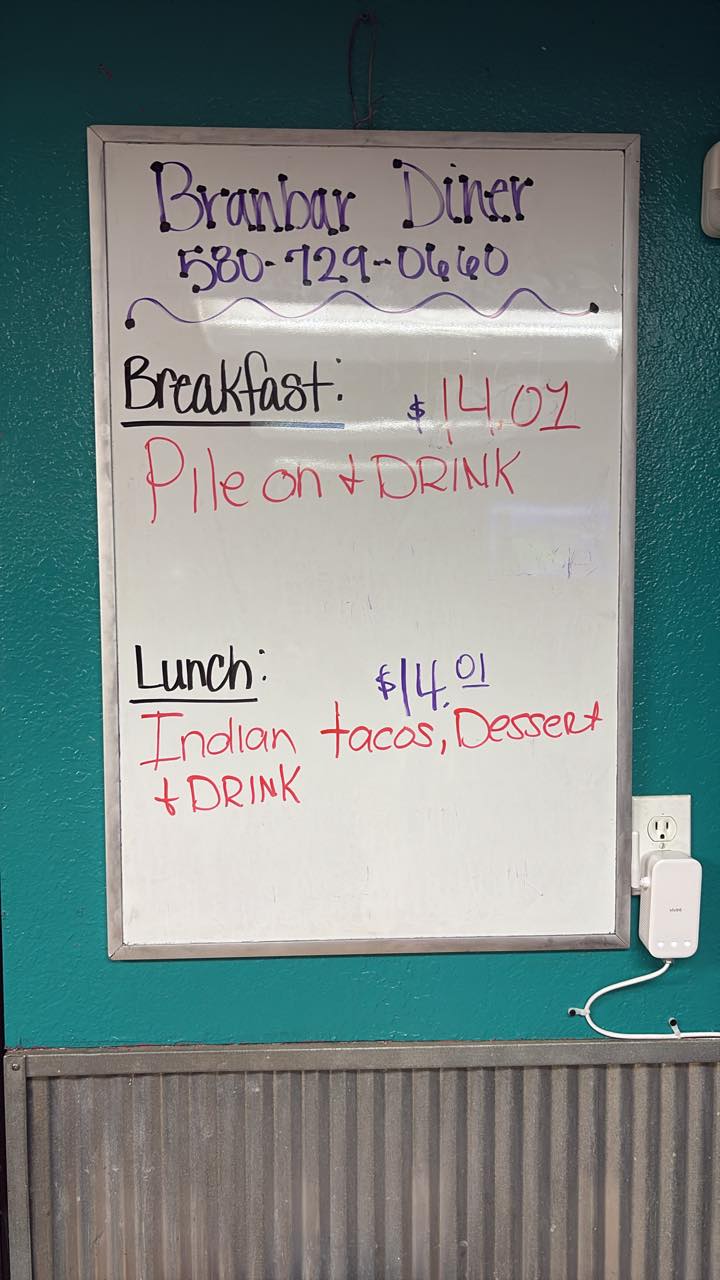 Branbar Diner
580-729-0660
Breakfast: $14.01
Pile on + DRINK
Lunch: $14.01
Indian tacos, Dessert
+ DRINK